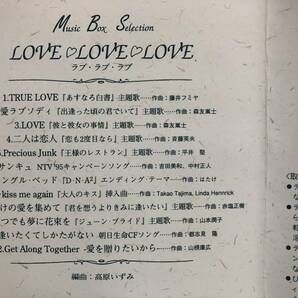 Music Box Selection
LOVE♡LOVE♡LOVE
ラブ・ラブ・ラブ
1.TRUE LOVE『あすなろ白書』主題歌…作曲：藤井フミヤ
愛ラプソディ『出逢った頃の君でいて』主題歌…作曲：森友嵐士
3.LOVE『彼と彼女の事情』主題歌…作曲：森友嵐士
4.二人は恋人『恋も2度目なら』主題歌…作曲：斉藤英夫
.Precious Junk『王様のレストラン』主題歌…作曲：平井 堅
サンキュ NTV'95キャンペーンソング…作曲：吉田美和、中村正人
ングル・ベッド『D・N・A²』エンディング・テーマ…作曲：はたけ
kiss me again『大人のキス』挿入曲…作曲：Takao Tajima, Linda Hennrick
けの愛を集めて『君を想うよりきみに逢いたい』主題歌…作曲：赤塩正樹
つでも夢に花束を『ジューン・ブライド』主題歌…作曲：山本潤子
逢いたくてしかたがない 朝日生命CFソング…作曲：都志見 隆
2.Get Along Together -愛を贈りたいから-…作曲：山根康広
編曲：高原いずみ
《取